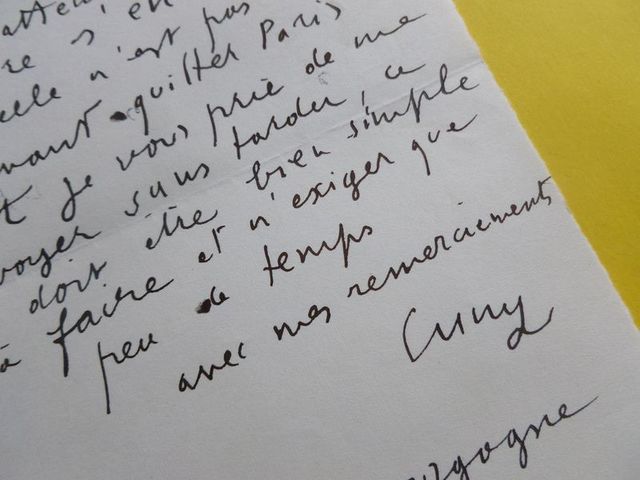 re s'en
elle n'est pas
quitter Paris
je vous prie de me
sans tarder, ce
doit être bien simple
à faire et n'exiger que
peu de temps
avec mes remerciements
Cuny